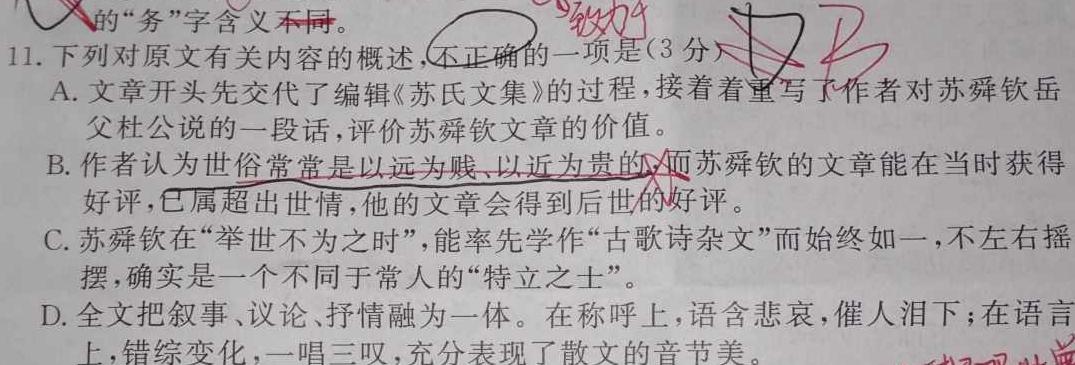 的“务”字含义不同。
致力于
11. 下列对原文有关内容的概述,不正确的一项是(3分)
B
A. 文章开头先交代了编辑《苏氏文集》的过程,接着着重写了作者对苏舜钦岳
父杜公说的一段话,评价苏舜钦文章的价值。
B. 作者认为世俗常常是以远为贱、以近为贵的,而苏舜钦的文章能在当时获得
好评,已属超出世情,他的文章会得到后世的好评。
C. 苏舜钦在“举世不为之时”,能率先学作“古歌诗杂文”而始终如一,不左右摇
摆,确实是一个不同于常人的“特立之士”。
D. 全文把叙事、议论、抒情融为一体。在称呼上,语含悲哀,催人泪下;在语言
上,错综变化,一唱三叹,充分表现了散文的音节美。